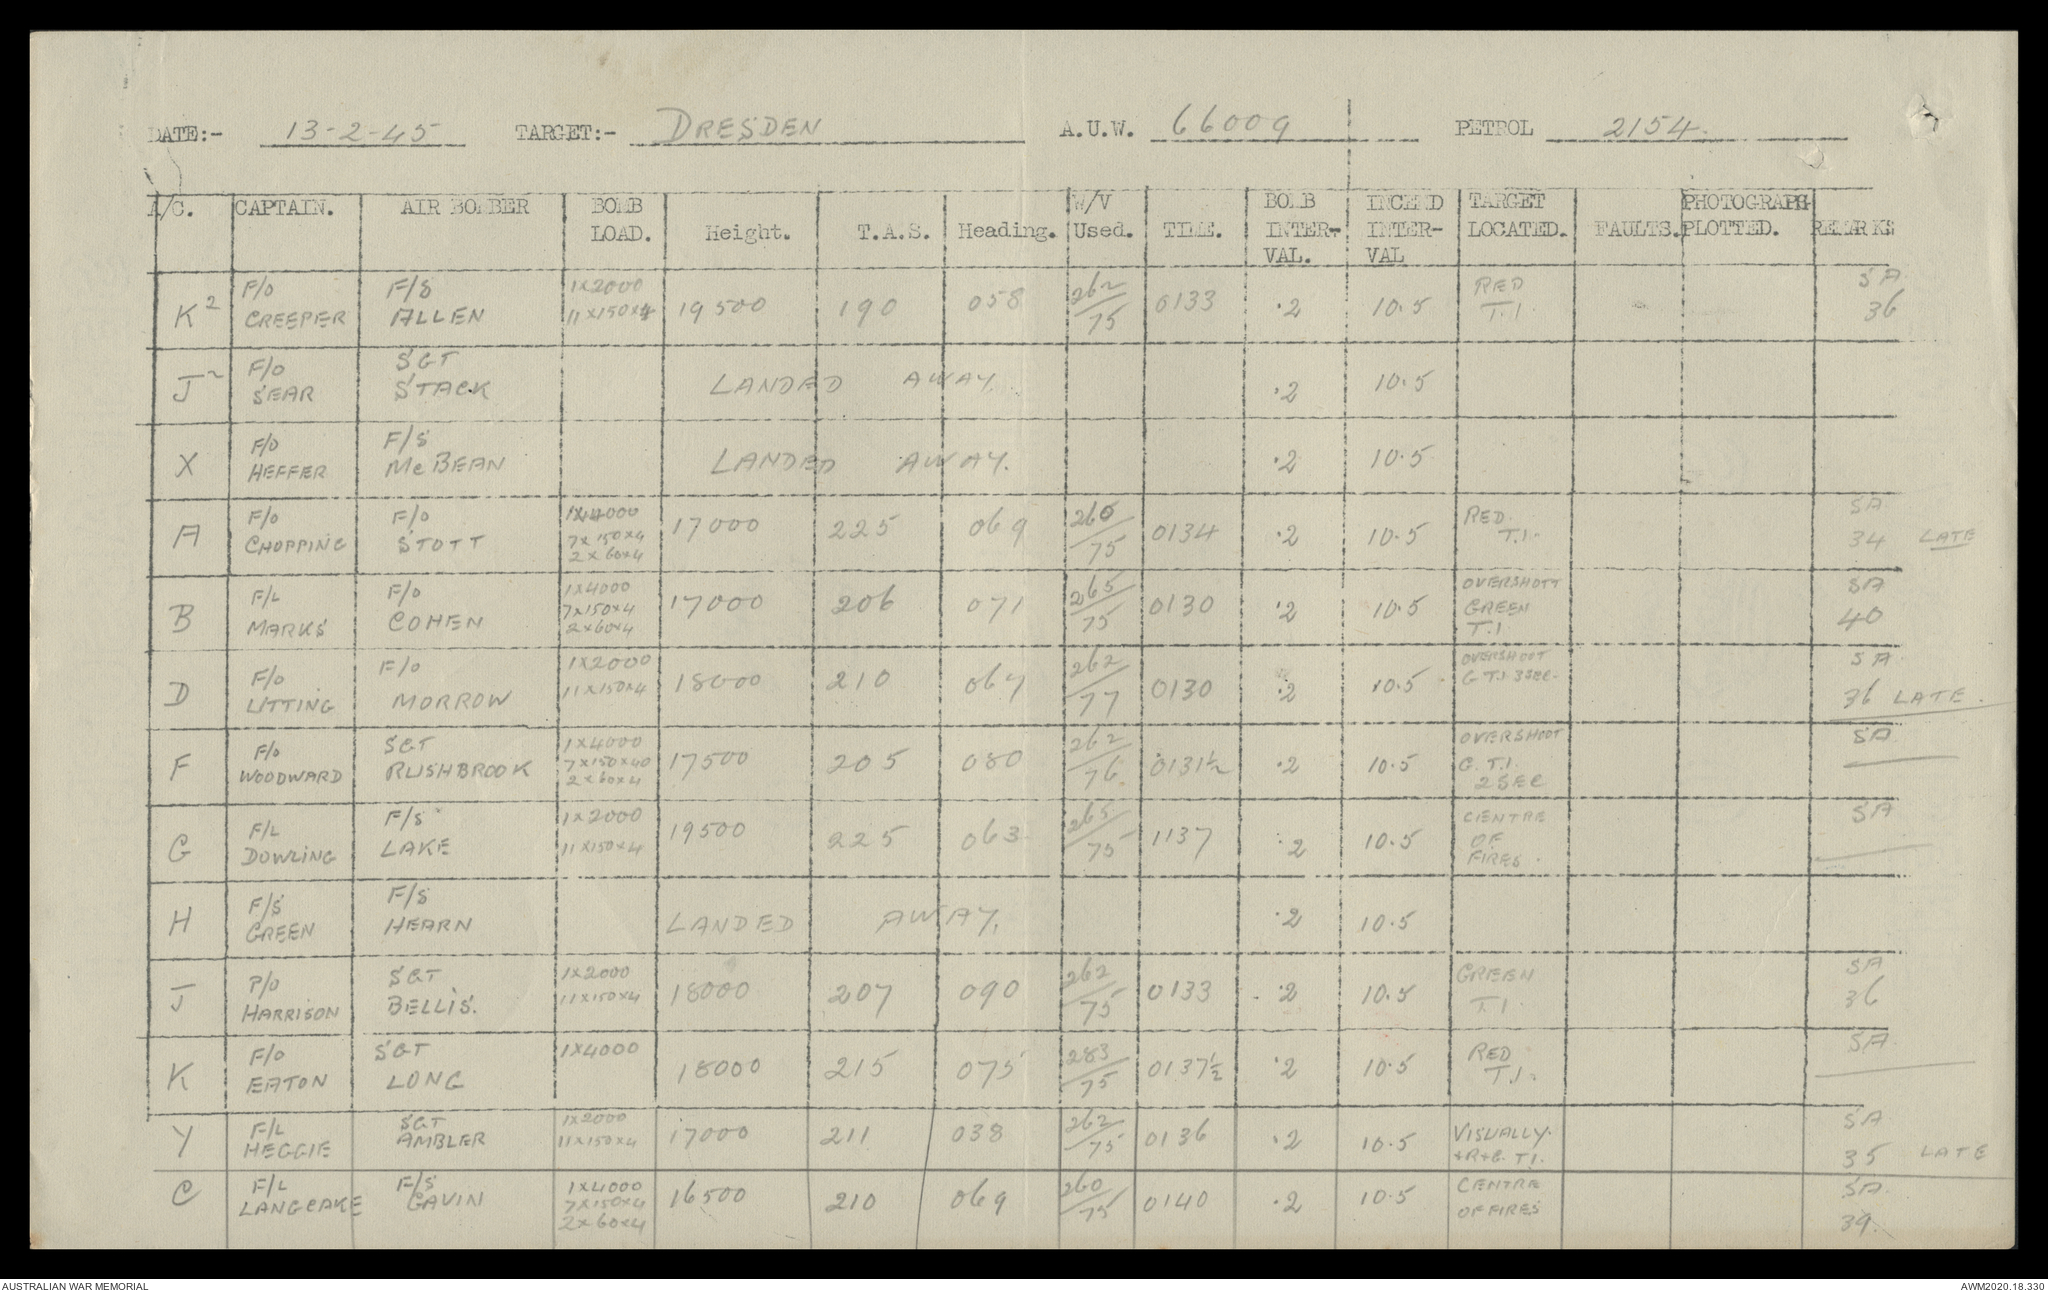 DATE:- 13-2-45 TARGET:- DRESDEN A.U.W. 66009 PETROL 2154.
A/C. CAPTAIN. AIR BOMBER BOMB LOAD. Height. T.A.S. Heading. W/V Used. TIME. BOMB INTER-VAL. INCEND INTER-VAL TARGET LOCATED. FAULTS. PHOTOGRAPH PLOTTED. REMARKS
K2 F/O CREEPER F/S ALLEN 1x2000 11x150x4 19500 190 058 262/75 0133 .2 10.5 RED T.I. SA 36
J2 F/O SEAR SGT STACK LANDED AWAY. .2 10.5
X F/O HEFFER F/S McBEAN LANDED AWAY. .2 10.5
A F/O CHOPPING F/O STOTT 1x4000 7x150x4 2x60x4 17000 225 069 260/75 0134 .2 10.5 RED T.I. SA 34 LATE
B F/L MARKS F/O COHEN 1x4000 7x150x4 2x60x4 17000 206 071 265/75 0130 .2 10.5 OVERSHOTT GREEN T.I. SA 40
D F/O LITTING F/O MORROW 1x2000 11x150x4 18000 210 067 262/77 0130 .2 10.5 OVERSHOOT G T.I 3SEC. SA 36 LATE.
F F/O WOODWARD SGT RUSHBROOK 1x4000 7x150x40 2x60x4 17500 205 080 262/76 0131½ .2 10.5 OVERSHOOT G.T.I. 2SEC SA
G F/L DOWLING F/S LAKE 1x2000 11x150x4 19500 225 063 265/75 1137 .2 10.5 CENTRE OF FIRES. SA
H F/S GREEN F/S HEARN LANDED AWAY. .2 10.5
J P/O HARRISON SGT BELLIS. 1x2000 11x150x4 18000 207 090 262/75 0133 .2 10.5 GREEN T I SA 36
K F/O EATON SGT LONG 1x4000 18000 215 075 283/75 0137½ .2 10.5 RED T.I. SA
Y F/L HEGGIE SGT AMBLER 1x2000 11x150x4 17000 211 038 262/75 0136 .2 10.5 VISUALLY. +R+G. T.I. SA 35 LATE
C F/L LANGCAKE F/S GAVIN 1x4000 7x150x4 2x60x4 16500 210 069 260/75 0140 .2 10.5 CENTRE OF FIRES SA. 39.
AUSTRALIAN WAR MEMORIAL AWM2020.18.330